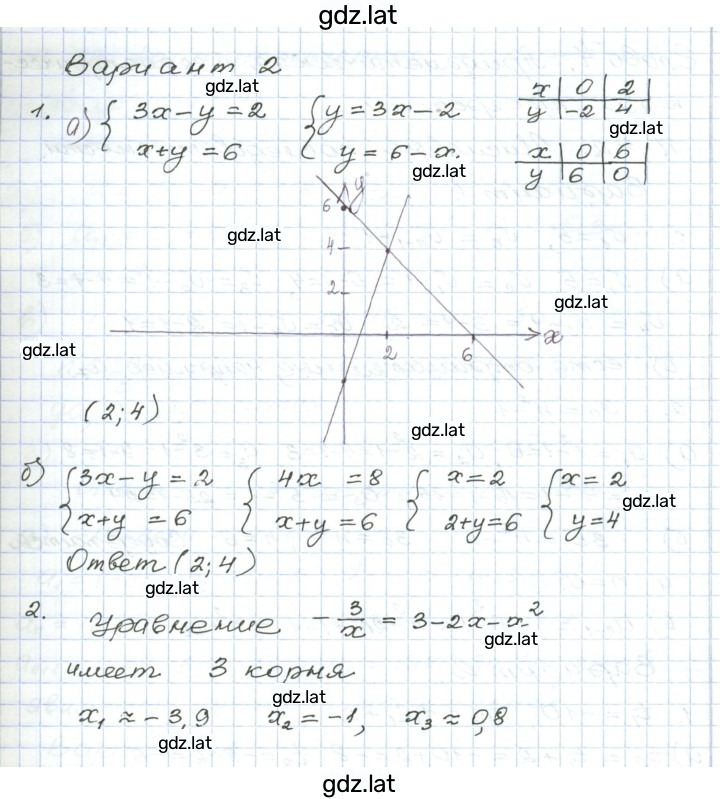 gdz.lat
Вариант 2
gdz.lat
1. а) { 3x – y = 2 { y = 3x – 2
x + y = 6 y = 6 – x.
x | 0 | 2
y | -2 | 4
gdz.lat
x | 0 | 6
y | 6 | 0
gdz.lat
y
6
gdz.lat
4
2
gdz.lat
x
gdz.lat
2 6
(2; 4)
gdz.lat
б) { 3x – y = 2 { 4x = 8 { x = 2 { x = 2
gdz.lat
x + y = 6 x + y = 6 2 + y = 6 y = 4
Ответ (2; 4)
gdz.lat
2. Уравнение – 3/x = 3 – 2x – x²
gdz.lat
имеет 3 корня
gdz.lat
x₁ ≈ – 3,9 x₂ = – 1, x₃ ≈ 0,8
gdz.lat
gdz.lat